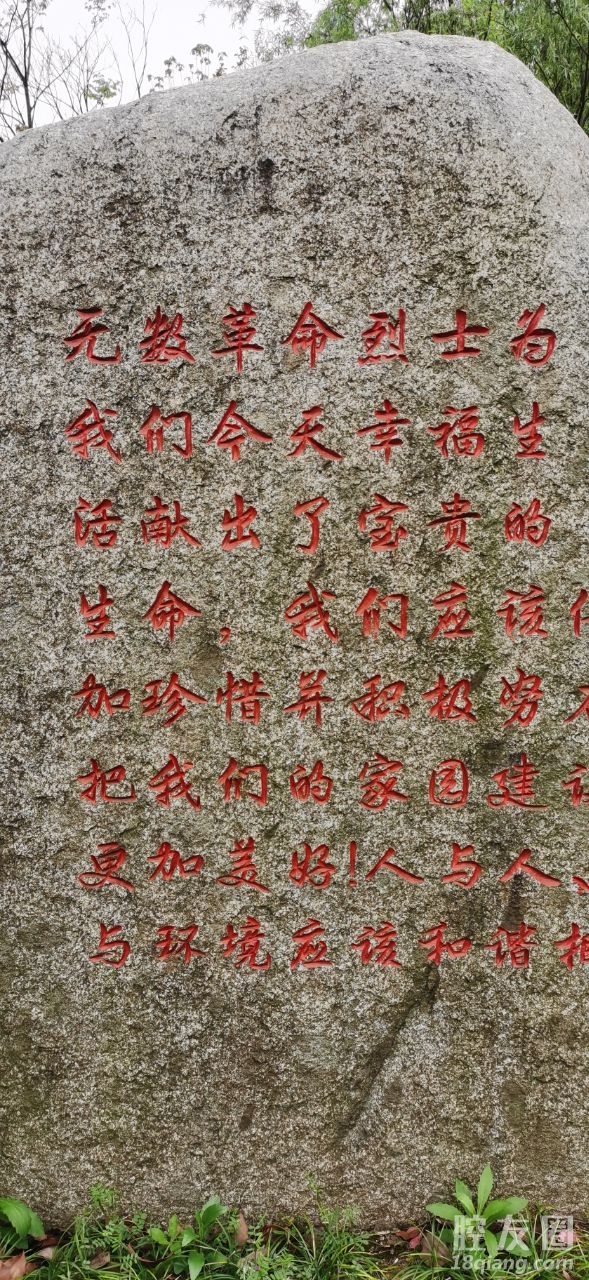 无数革命烈士为
我们今天幸福生
活献出了宝贵的
生命，我们应该
加珍惜并积极努
把我们的家园建设
更加美好！人与人、
与环境应该和谐相
腔友圈
18qiang.com